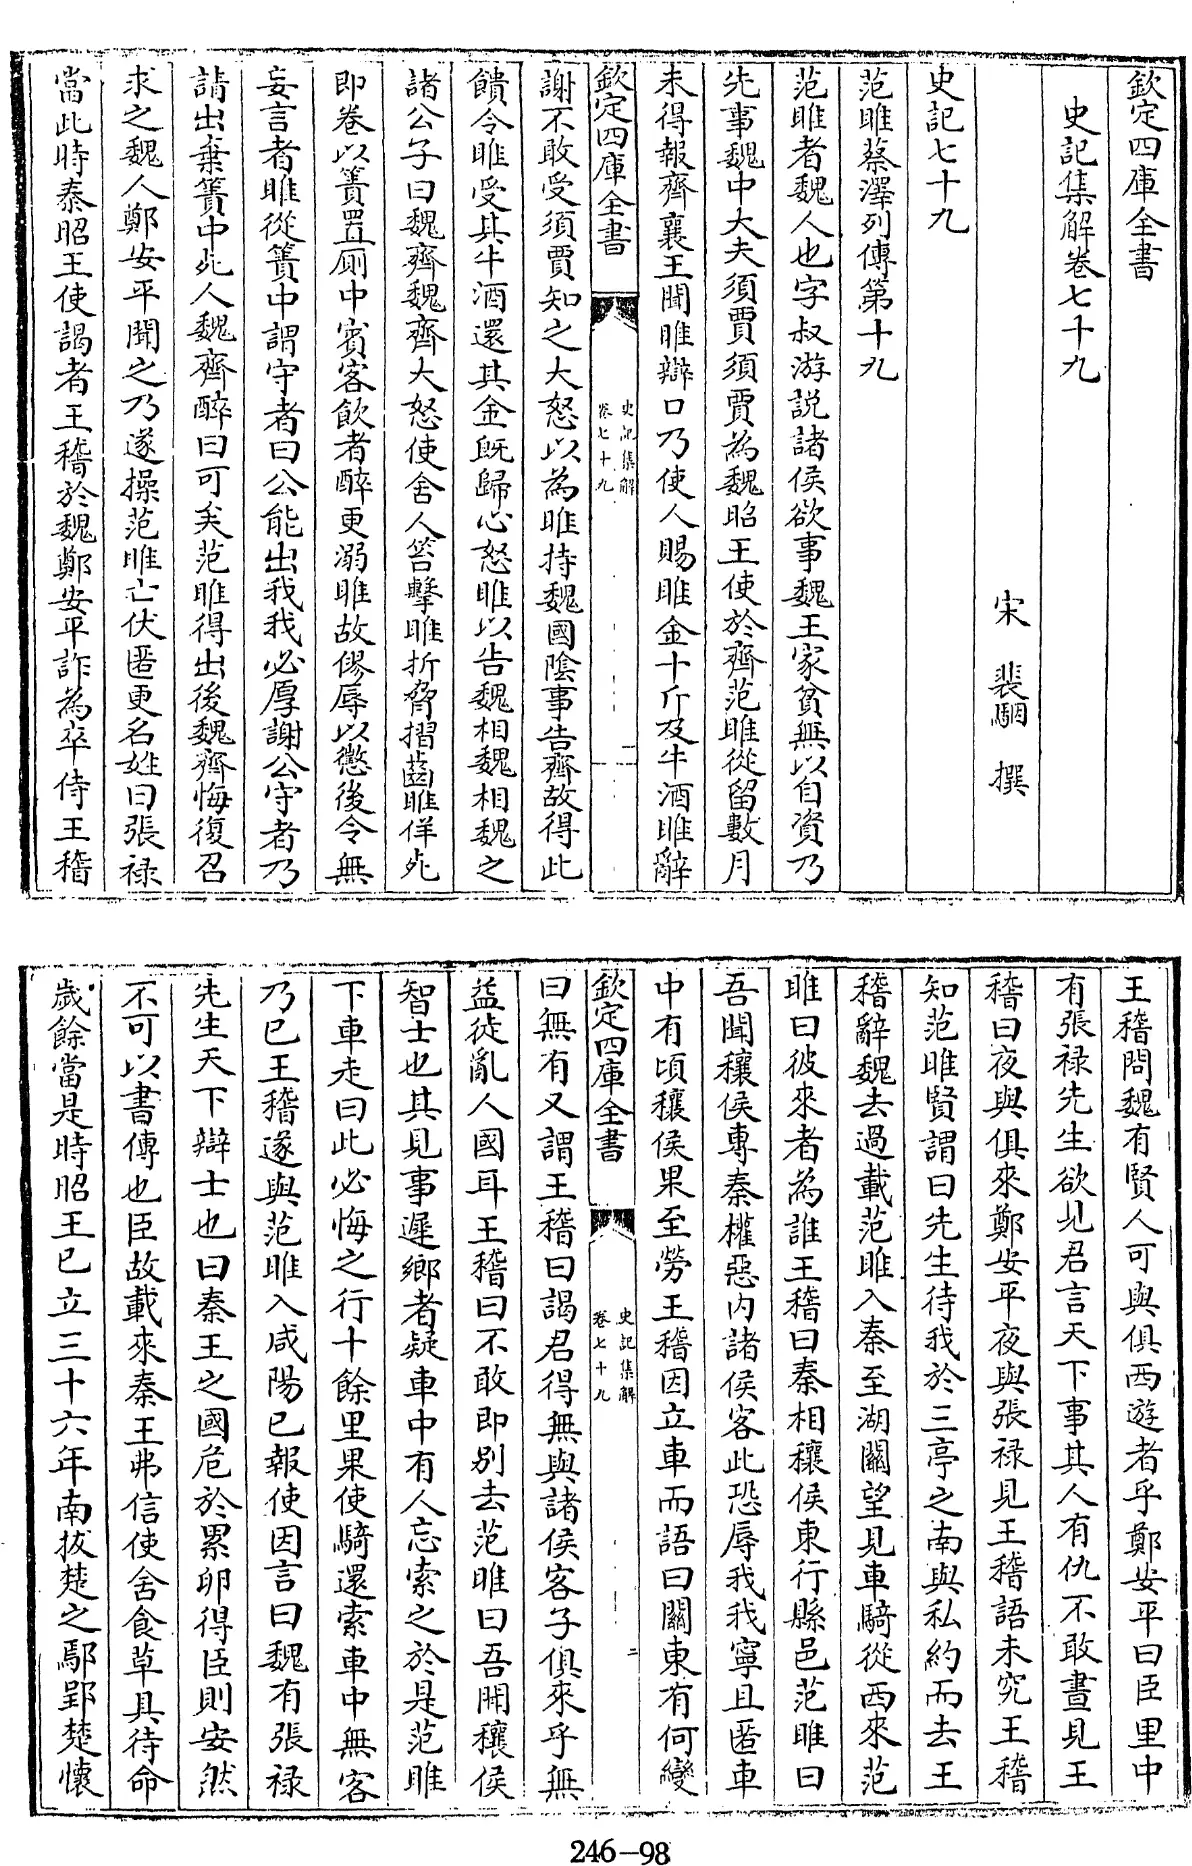 欽定四庫全書
史記集解卷七十九
宋 裴駰 撰
史記七十九
范雎蔡澤列傳第十九
范雎者魏人也字叔游説諸侯欲事魏王家貧無以自資乃
先事魏中大夫須賈須賈為魏昭王使於齊范雎從留數月
未得報齊襄王聞雎辯口乃使人賜雎金十斤及牛酒雎辭
欽定四庫全書
史記集解
卷七十九
一
謝不敢受須賈知之大怒以為雎持魏國陰事告齊故得此
饋令雎受其牛酒還其金既歸心怒雎以告魏相魏相魏之
諸公子曰魏齊魏齊大怒使舍人笞擊雎折脅摺齒雎佯死
即卷以簀置厠中賓客飲者醉更溺雎故僇辱以懲後令無
妄言者雎從簀中謂守者曰公能出我我必厚謝公守者乃
請出棄簀中死人魏齊醉曰可矣范雎得出後魏齊悔復召
求之魏人鄭安平聞之乃遂操范雎亡伏匿更名姓曰張禄
當此時秦昭王使謁者王稽於魏鄭安平詐為卒侍王稽
王稽問魏有賢人可與俱西遊者乎鄭安平曰臣里中
有張禄先生欲見君言天下事其人有仇不敢晝見王
稽曰夜與俱來鄭安平夜與張禄見王稽語未究王稽
知范雎賢謂曰先生待我於三亭之南與私約而去王
稽辭魏去過載范雎入秦至湖關望見車騎從西來范
雎曰彼來者為誰王稽曰秦相穰侯東行縣邑范雎曰
吾聞穰侯專秦權惡内諸侯客此恐辱我我寧且匿車
中有頃穰侯果至勞王稽因立車而語曰關東有何變
欽定四庫全書
史記集解
卷七十九
二
曰無有又謂王稽曰謁君得無與諸侯客子俱來乎無
益徒亂人國耳王稽曰不敢即别去范雎曰吾聞穰侯
智士也其見事遲鄉者疑車中有人忘索之於是范雎
下車走曰此必悔之行十餘里果使騎還索車中無客
乃已王稽遂與范雎入咸陽已報使因言曰魏有張禄
先生天下辯士也曰秦王之國危於累卵得臣則安然
不可以書傳也臣故載來秦王弗信使舍食草具待命
歲餘當是時昭王已立三十六年南拔楚之鄢郢楚懷
246-98